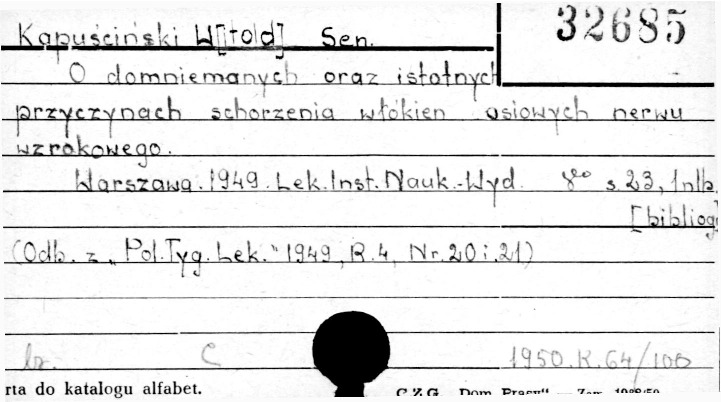 Kapuściński W[itold] Sen.
32685
O domniemanych oraz istotnych
przyczynach schorzenia włókien osiowych nerwu
wzrokowego.
Warszawa. 1949. Lek. Inst. Nauk.-Wyd. 8° s. 23, 1 nlb.
[bibliogr
(Odb. z „Pol. Tyg. Lek." 1949, R. 4, Nr. 20 i 21)
C 1950.K.64/100
rta do katalogu alfabet.
C.Z.G. „Dom Prasy" — Zam.